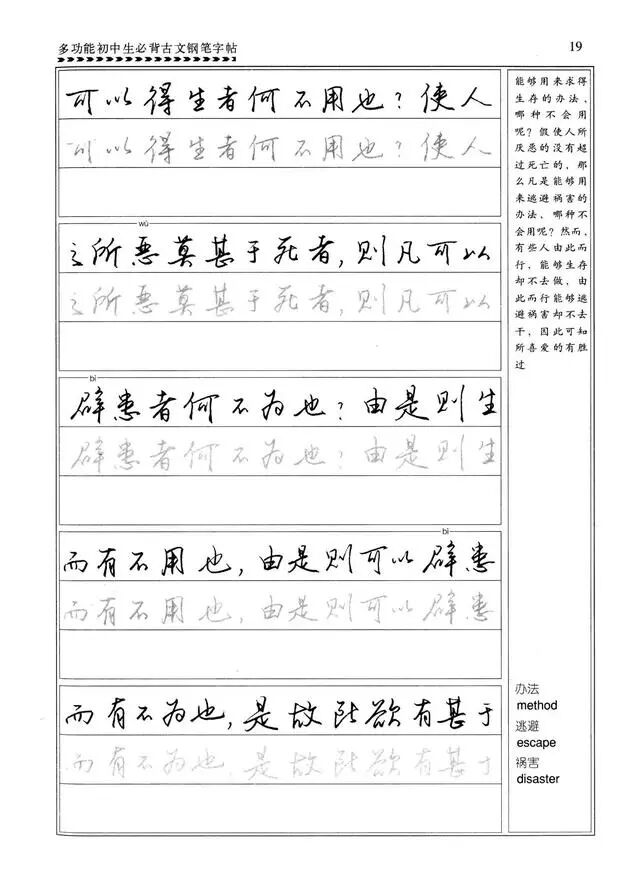 多功能初中生必背古文钢笔字帖
19
可以得生者何不用也？使人
可以得生者何不用也？使人
wù
之所恶莫甚于死者，则凡可以
之所恶莫甚于死者，则凡可以
bì
辟患者何不为也？由是则生
辟患者何不为也？由是则生
bì
而有不用也，由是则可以辟患
而有不用也，由是则可以辟患
而有不为也，是故所欲有甚于
而有不为也，是故所欲有甚于
能够用来求得
生存的办法、
哪种不会用
呢？假使人所
厌恶的没有超
过死亡的，那
么凡是能够用
来逃避祸害的
办法，哪种不
会用呢？然而，
有些人由此而
行，能够生存
却不去做，由
此而行能够逃
避祸害却不去
干，因此可知
所喜爱的有胜
过
办法
method
逃避
escape
祸害
disaster